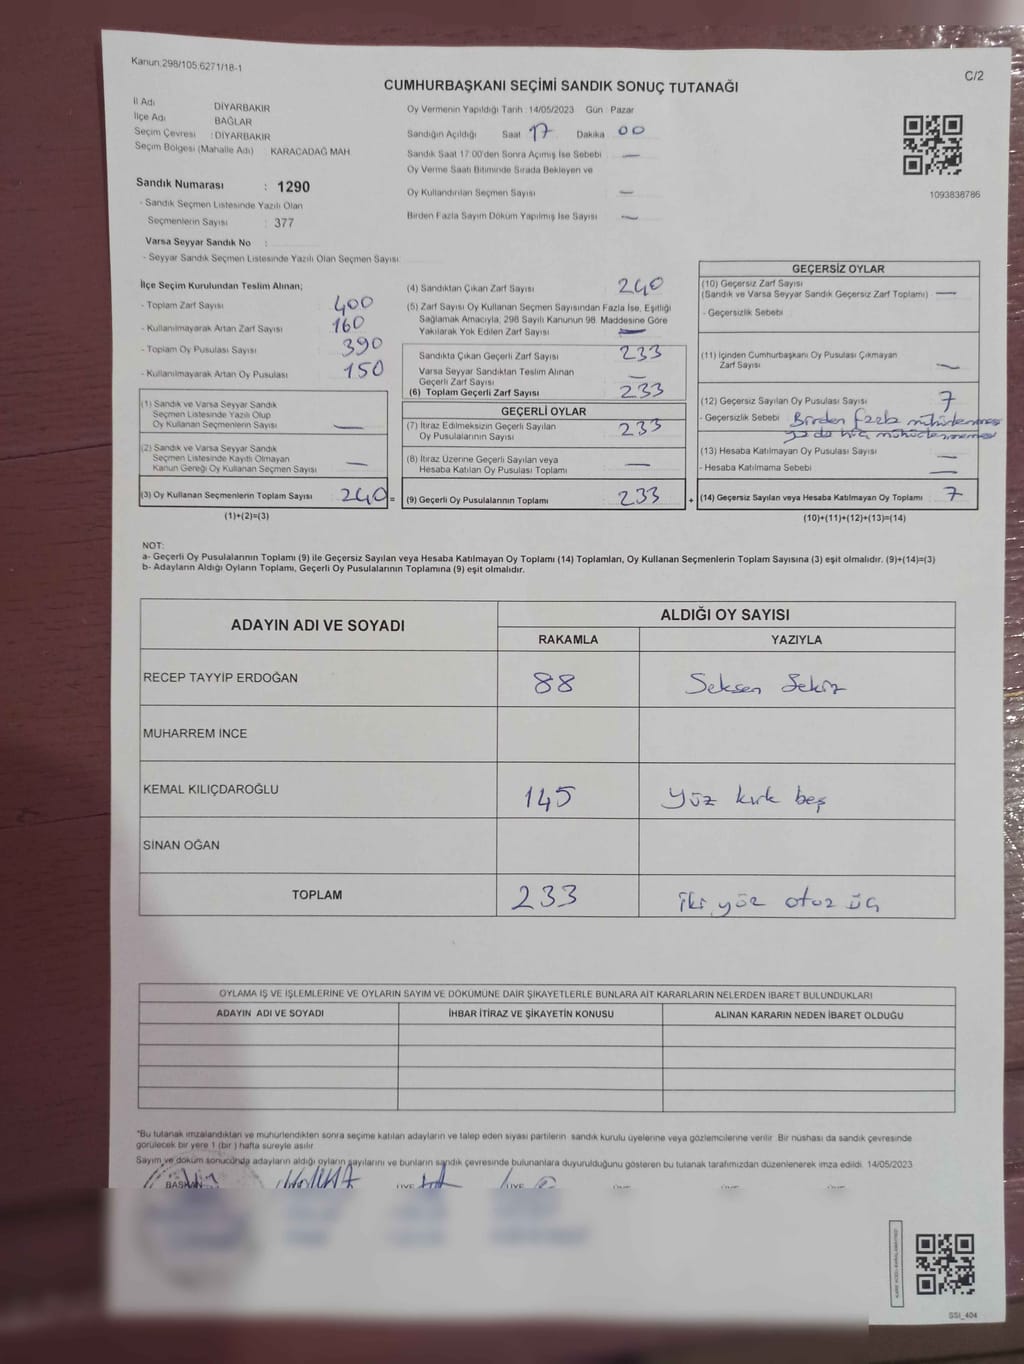 Kanun:298/105;6271/18-1
C/2
CUMHURBAŞKANI SEÇİMİ SANDIK SONUÇ TUTANAĞI
İl Adı DİYARBAKIR
İlçe Adı BAĞLAR
Seçim Çevresi : DİYARBAKIR
Seçim Bölgesi (Mahalle Adı) KARACADAĞ MAH
Sandık Numarası : 1290
- Sandık Seçmen Listesinde Yazılı Olan
Seçmenlerin Sayısı : 377
Varsa Seyyar Sandık No :
- Seyyar Sandık Seçmen Listesinde Yazılı Olan Seçmen Sayısı:
Oy Vermenin Yapıldığı Tarih :14/05/2023 Gün : Pazar
Sandığın Açıldığı Saat 17 Dakika 00
Sandık Saat 17:00'den Sonra Açımış İse Sebebi —
Oy Verme Saati Bitiminde Sırada Bekleyen ve
Oy Kullandırılan Seçmen Sayısı —
Birden Fazla Sayım Döküm Yapılmış İse Sayısı —
1093838786
İlçe Seçim Kurulundan Teslim Alınan;
- Toplam Zarf Sayısı 400
- Kullanılmayarak Artan Zarf Sayısı 160
- Toplam Oy Pusulası Sayısı 390
- Kullanılmayarak Artan Oy Pusulası 150
(1) Sandık ve Varsa Seyyar Sandık
Seçmen Listesinde Yazılı Olup
Oy Kullanan Seçmenlerin Sayısı —
(2) Sandık ve Varsa Seyyar Sandık
Seçmen Listesinde Kayıtlı Olmayan
Kanun Gereği Oy Kullanan Seçmen Sayısı —
(3) Oy Kullanan Seçmenlerin Toplam Sayısı 240 =
(1)+(2)=(3)
(4) Sandıktan Çıkan Zarf Sayısı 240
(5) Zarf Sayısı Oy Kullanan Seçmen Sayısından Fazla İse, Eşitliği
Sağlamak Amacıyla, 298 Sayılı Kanunun 98. Maddesine Göre
Yakılarak Yok Edilen Zarf Sayısı —
Sandıkta Çıkan Geçerli Zarf Sayısı 233
Varsa Seyyar Sandıktan Teslim Alınan
Geçerli Zarf Sayısı —
(6) Toplam Geçerli Zarf Sayısı 233
GEÇERLİ OYLAR
(7) İtiraz Edilmeksizin Geçerli Sayılan
Oy Pusulalarının Sayısı 233
(8) İtiraz Üzerine Geçerli Sayılan veya
Hesaba Katılan Oy Pusulası Toplamı —
(9) Geçerli Oy Pusulalarının Toplamı 233 +
GEÇERSİZ OYLAR
(10) Geçersiz Zarf Sayısı
(Sandık ve Varsa Seyyar Sandık Geçersiz Zarf Toplamı) —
- Geçersizlik Sebebi
(11) İçinden Cumhurbaşkanı Oy Pusulası Çıkmayan
Zarf Sayısı —
(12) Geçersiz Sayılan Oy Pusulası Sayısı 7
- Geçersizlik Sebebi Birden fazla mühürlenmesi
ya da hiç mühürlenmemesi
(13) Hesaba Katılmayan Oy Pusulası Sayısı —
- Hesaba Katılmama Sebebi —
(14) Geçersiz Sayılan veya Hesaba Katılmayan Oy Toplamı 7
(10)+(11)+(12)+(13)=(14)
NOT:
a- Geçerli Oy Pusulalarının Toplamı (9) ile Geçersiz Sayılan veya Hesaba Katılmayan Oy Toplamı (14) Toplamları, Oy Kullanan Seçmenlerin Toplam Sayısına (3) eşit olmalıdır. (9)+(14)=(3)
b- Adayların Aldığı Oyların Toplamı, Geçerli Oy Pusulalarının Toplamına (9) eşit olmalıdır.
ADAYIN ADI VE SOYADI
ALDIĞI OY SAYISI
RAKAMLA YAZIYLA
RECEP TAYYİP ERDOĞAN 88 Seksen Sekiz
MUHARREM İNCE
KEMAL KILIÇDAROĞLU 145 Yüz kırk beş
SİNAN OĞAN
TOPLAM 233 iki yüz otuz üç
OYLAMA İŞ VE İŞLEMLERİNE VE OYLARIN SAYIM VE DÖKÜMÜNE DAİR ŞİKAYETLERLE BUNLARA AİT KARARLARIN NELERDEN İBARET BULUNDUKLARI
ADAYIN ADI VE SOYADI İHBAR İTİRAZ VE ŞİKAYETİN KONUSU ALINAN KARARIN NEDEN İBARET OLDUĞU
*Bu tutanak imzalandıktan ve mühürlendikten sonra seçime katılan adayların ve talep eden siyasi partilerin sandık kurulu üyelerine veya gözlemcilerine verilir. Bir nüshası da sandık çevresinde
görülecek bir yere 1 (bir ) hafta süreyle asılır.
Sayım ve döküm sonucunda adayların aldığı oyların sayılarını ve bunların sandık çevresinde bulunanlara duyurulduğunu gösteren bu tutanak tarafımızdan düzenlenerek imza edildi. 14/05/2023
BAŞKAN ÜYE ÜYE
SSİ_404